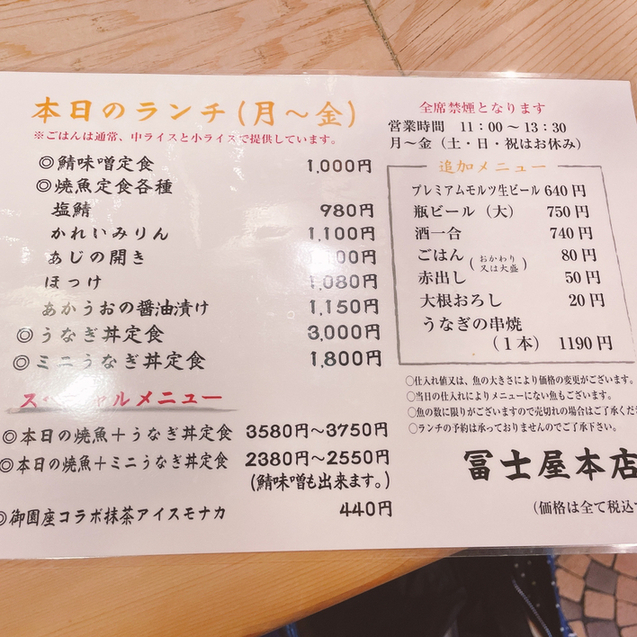 本日のランチ(月〜金)
※ごはんは通常、中ライスと小ライスで提供しています。
◎鯖味噌定食 1,000円
◎焼魚定食各種
塩鯖 980円
かれいみりん 1,100円
あじの開き 00円
ほっけ 1,080円
あかうおの醤油漬け 1,150円
◎うなぎ丼定食 3,000円
◎ミニうなぎ丼定食 1,800円
スペシャルメニュー
◎本日の焼魚＋うなぎ丼定食 3580円〜3750円
◎本日の焼魚＋ミニうなぎ丼定食 2380円〜2550円
(鯖味噌も出来ます。)
◎御園座コラボ抹茶アイスモナカ 440円
全席禁煙となります
営業時間 11：00〜13：30
月〜金（土・日・祝はお休み）
追加メニュー
プレミアムモルツ生ビール 640円
瓶ビール（大） 750円
酒一合 740円
ごはん（おかわり又は大盛） 80円
赤出し 50円
大根おろし 20円
うなぎの串焼
（1本） 1190円
○仕入れ値又は、魚の大きさにより価格の変更がございます。
○当日の仕入れによりメニューにない魚もございます。
○魚の数に限りがございますので売切れの場合はご了承くだ
○ランチの予約は承っておりませんのでご了承下さい。
冨士屋本店
（価格は全て税込